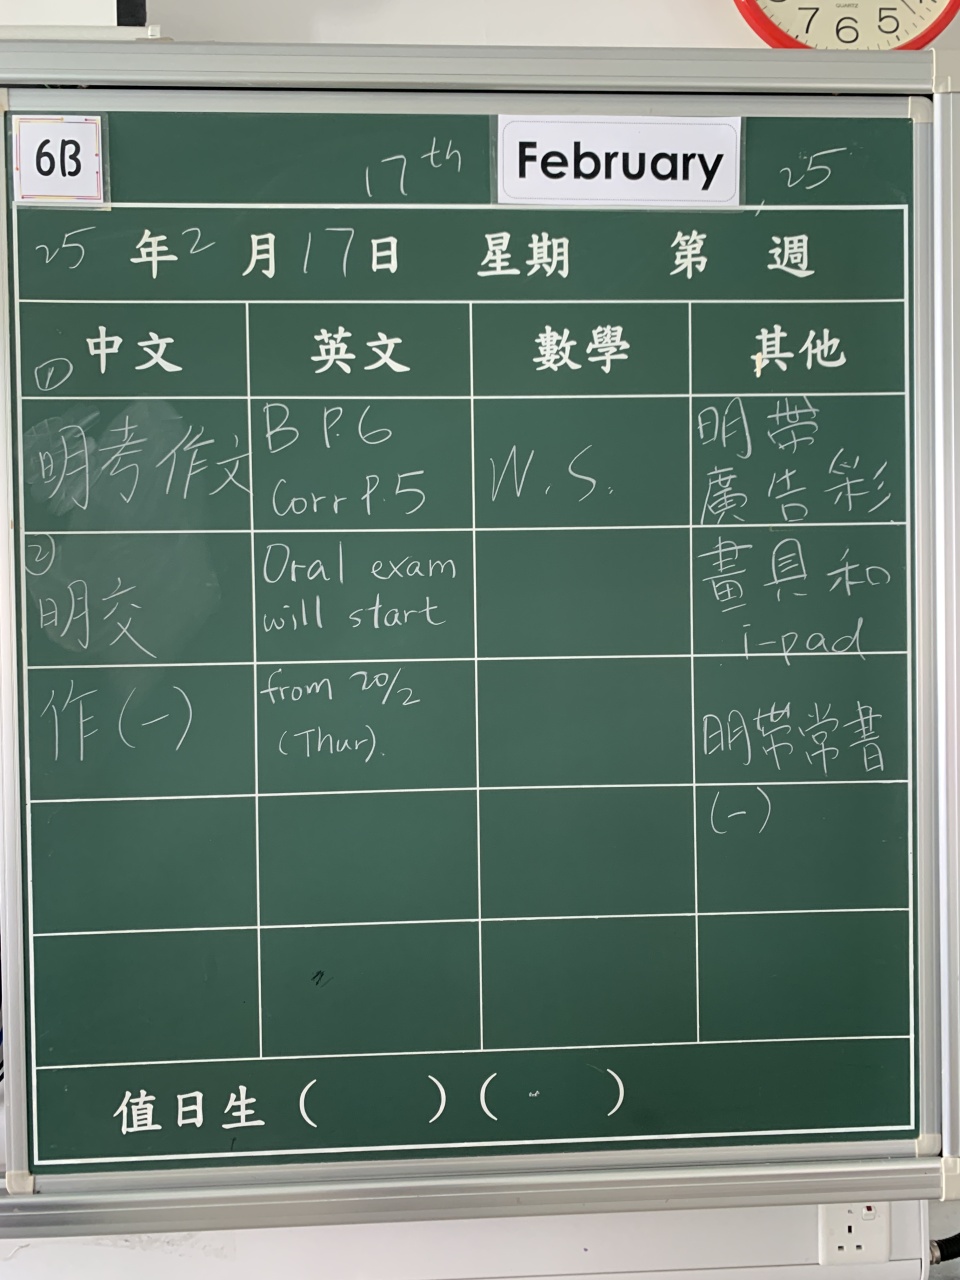 7 6 5
QUARTZ
6B
17th February 25
25年2月17日 星期 第 週
中文 英文 數學 其他
①
明考作文
②
明交
作(一)
B P.6
Corr P.5
Oral exam
will start
from 20/2
(Thur).
W.S.
明帶
廣告彩
畫具和
i-pad
明帶常書
(一)
值日生( )( )